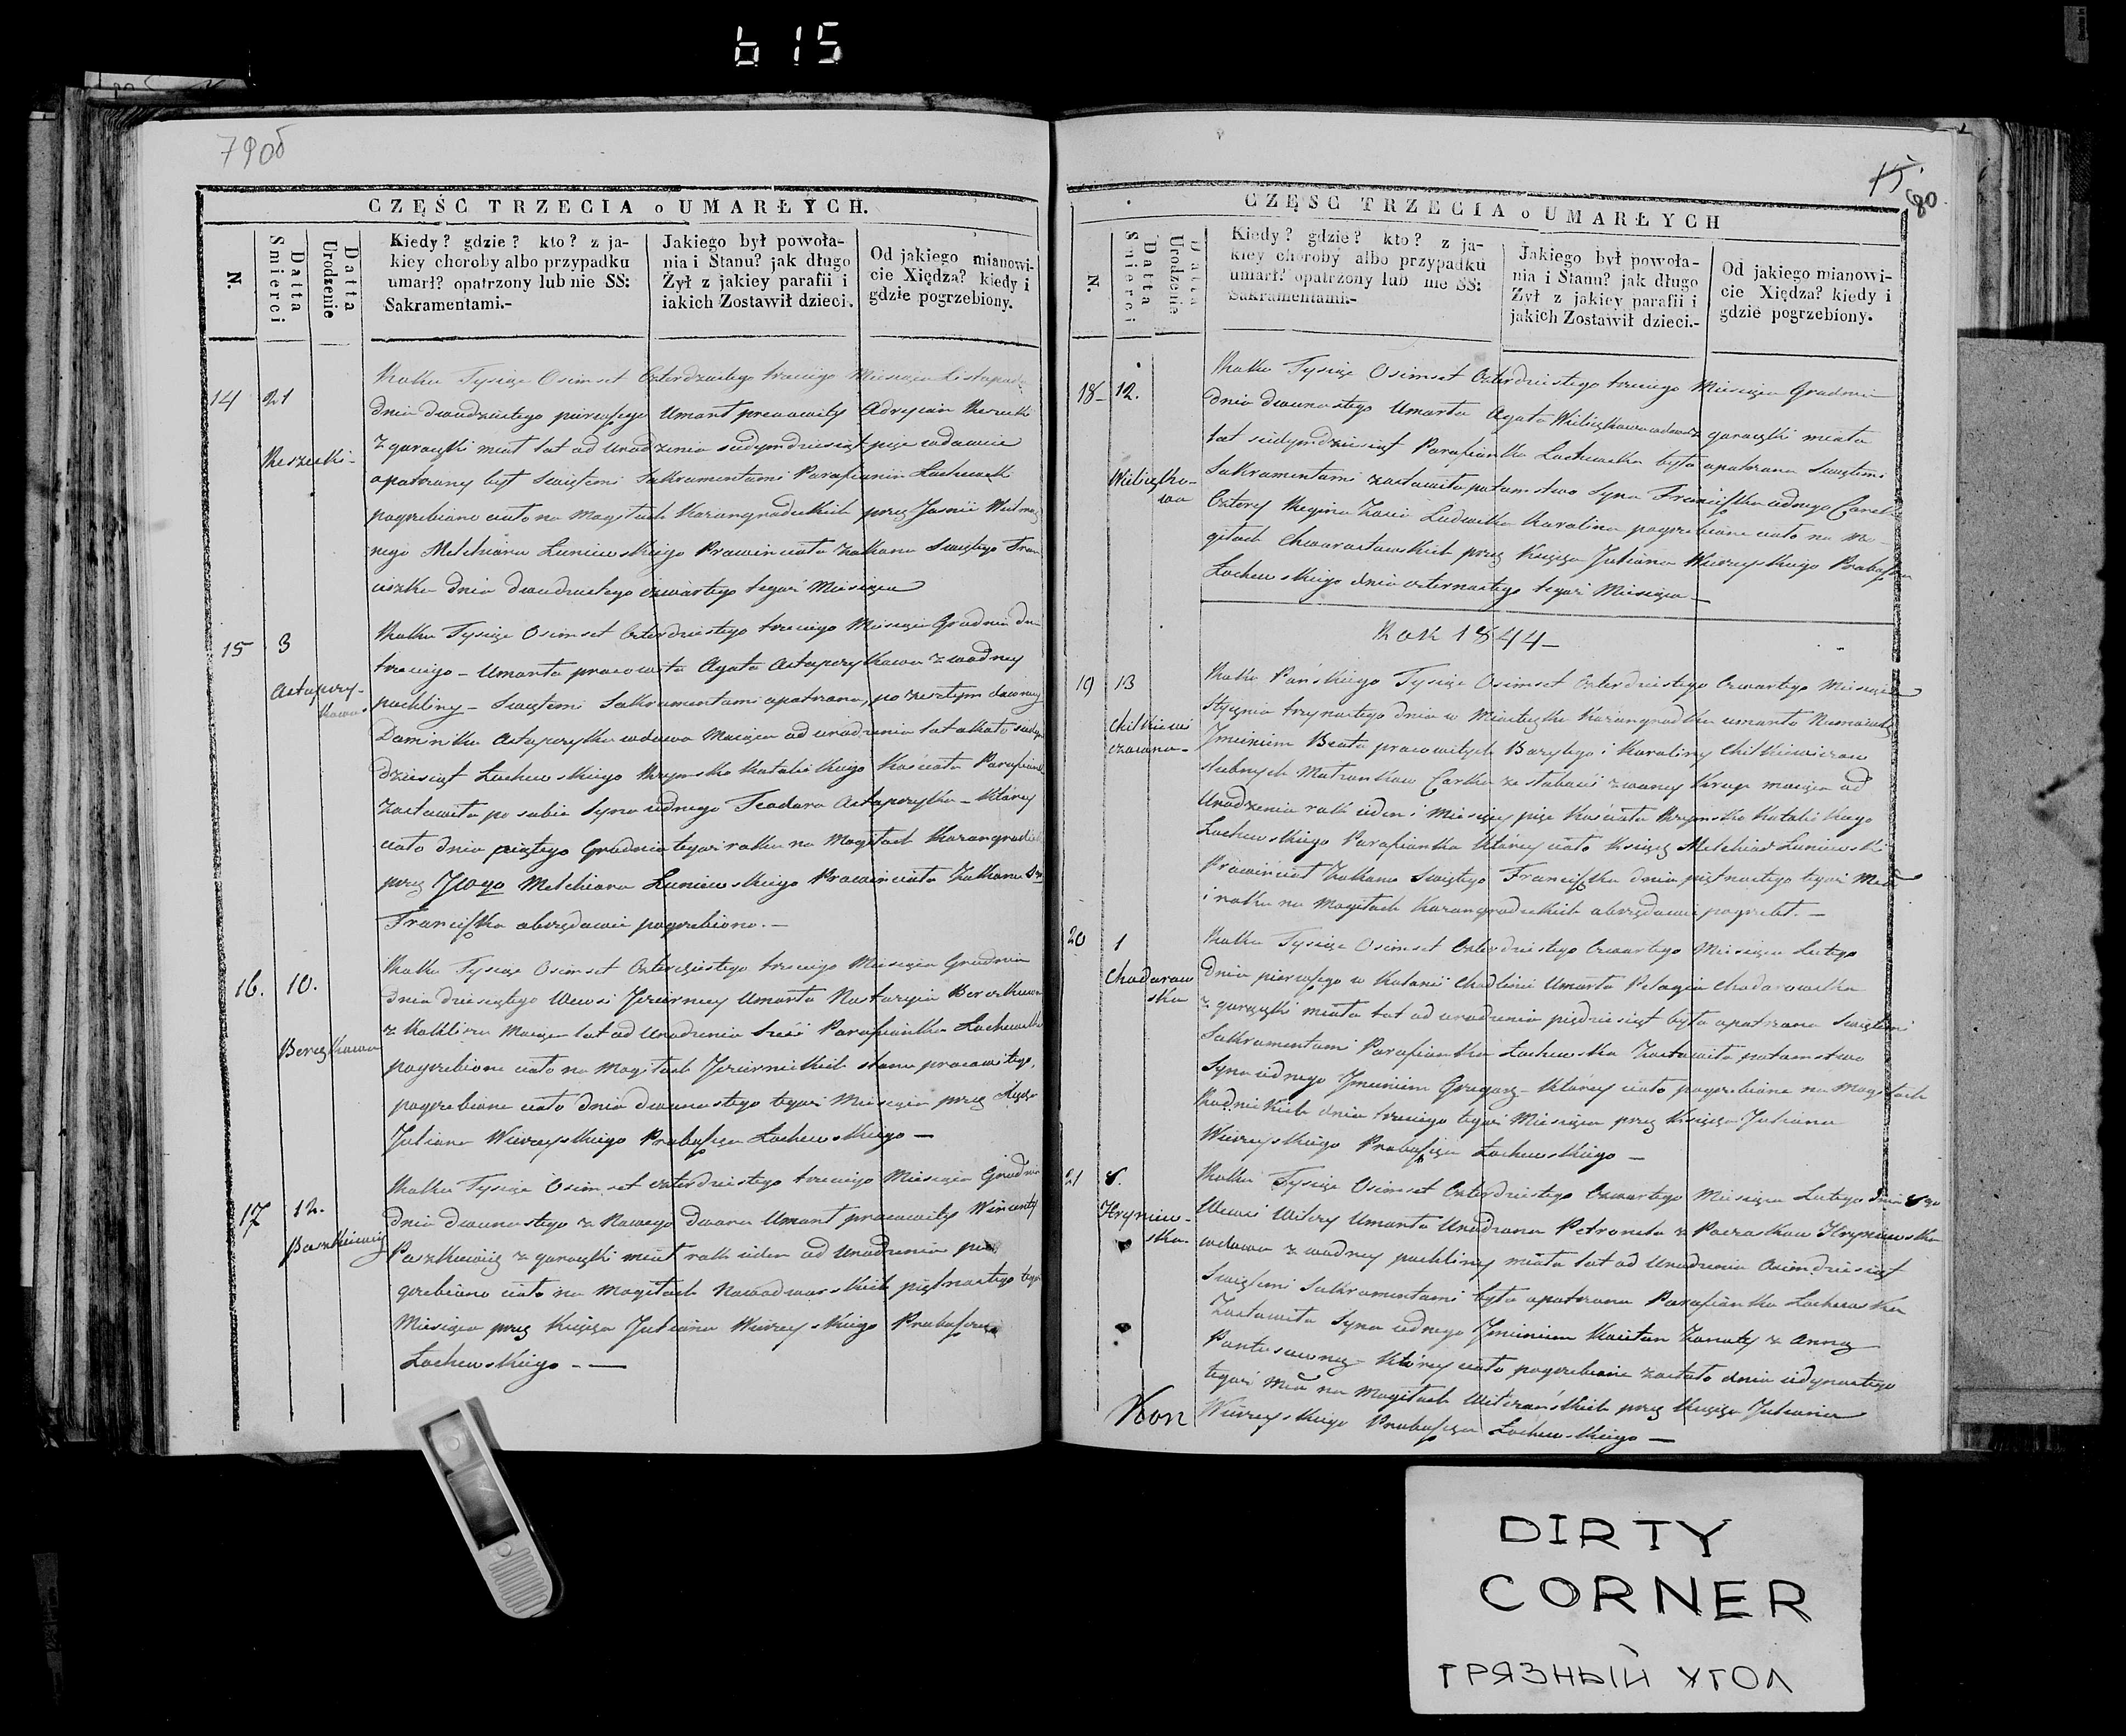 b 15
79об
CZĘŚĆ TRZECIA o UMARŁYCH.
N.
Datta Smierci
Datta Urodzenie
Kiedy? gdzie? kto? z ja-
kiey choroby albo przypadku
umarł? opatrzony lub nie SS:
Sakramentami.-
Jakiego był powoła-
nia i Stanu? jak długo
Żył z jakiey parafii i
iakich Zostawił dzieci.
Od jakiego mianowi-
cie Xiędza? kiedy i
gdzie pogrzebiony.
14 21
Roku Tysiąc Osimset Czterdziestego trzeciego Miesiąca Listopada
dnia dwudziestego pierwszego Umarł pracowity Adrysian
z gorączki miał lat od Urodzenia siedymdziesiąt pięć wdowiec
opatrzony był Swiętemi Sakramentami Parafianin Łachewski
pogrzebiono ciało na Mogiłach Kożangrodzkich przez Jasnie Wielmoż
nego Melchiora Łuniewskiego Prowinciała Zakonu Swiętego Fran
ciszka dnia dwudziestego czwartego tegoż Miesiąca
15 3
Astapczy-
kowa.
Roku Tysiąc Osimset Czterdziestego trzeciego Miesiąca Grudnia dn
trzeciego – Umarła pracowita Agata Astapczykowa z wodney
puchliny – Swiętemi Sakramentami opatrzona, po zeszłym
Dominiku Astapczyku wdowa Maiąca od urodzenia lat około siedym
dziesiąt Łachewskiego Rzymsko Katolickiego Kościoła Parafianka
Zostawiła po sobie Syna iednego Teodora Astapczyka – Którey
ciało dnia piątego Grudnia tegoż roku na Mogiłach Kożangrodzkich
przez JWgo Melchiora Łuniewskiego Prowinciała Zakonu
Franciszka obrzędowie pogrzebiono. –
16. 10.
Bereszkowa
Roku Tysiąc Osimset Czterdziestego trzeciego Miesiąca Grudnia
dnia dziesiątego Wewsi Jeziernicy Umarła Nastazyia
z Kokliszu Maiąca lat od Urodzenia Sześć Parafianka Łachewska
pogrzebiono ciało na Mogiłach Jeziernickich stanu pracowitego,
pogrzebiono ciało dnia dwunastego tegoż Miesiąca przez Księdza
Juliana Wierzyskiego Proboszcza Łachewskiego –
17 12.
Paszkiewicz
Roku Tysiąc Osimset czterdziestego trzeciego Miesiąca Grudnia
dnia dwunastego z Nowego Dwora Umarł pracowity Wincenty
Paszkiewicz z gorączki miał rok ieden od Urodzenia po
grzebiono ciało na Mogiłach Nowodworskich piętnastego tegoż
Miesiąca przez Księdza Juliana Wierzyskiego Proboszcza
Łachewskiego – –
15.
80
CZĘŚC TRZECIA o UMARŁYCH
N.
Datta Smierci
Datta Urodzenie
Kiedy? gdzie? kto? z ja-
kiey choroby albo przypadku
umarł? opatrzony lub nie SS:
Sakramentami.-
Jakiego był powoła-
nia i Stanu? jak długo
Żył z jakiey parafii i
jakich Zostawił dzieci.-
Od jakiego mianowi-
cie Xiędza? kiedy i
gdzie pogrzebiony.
18 12.
Wieliczko-
wa
Roku Tysiąc Osimset Czterdziestego trzeciego Miesiąca Grudnia
dnia dwunastego Umarła Agata Wieliczkowa wdowa z gorączki miała
lat siedymdziesiąt Parafianka Łachewska była opatrzona Swiętemi
Sakramentami zostawiła potomstwo Syna Franciszka iednego
Cztery Regina Zosia Ludwika Karolina pogrzebiono ciało na Mo-
giłach Chworostowskich przez Księdza Juliana Wierzyskiego Proboszcza
Łachewskiego dnia czternastego tegoż Miesiąca –
Rok 1844 –
19 13
Chilkiewi
czowna –
Roku Pańskiego Tysiąc Osimset Czterdziestego Czwartego Miesiąca
Stycznia trzynastego dnia w Miasteczku Kożangrodku umarła
Jmieniem Beata pracowitych Bazylego i Karoliny Chilkiewiczow
slubnych Małżonkow Corka ze słabości zwaney Krup maiąca od
Urodzenia rok ieden i Miesięcy pięć Kościoła Rzymsko Katolickiego
Łachewskiego Parafianka Którey ciało Ksiądz Melchior Łuniewski
Prowinciał Zakonu Swiętego Franciszka dnia piętnastego tegoż
i roku na Mogiłach Kożangrodzkich obrzędowie pogrzebł. –
20 1
Chodorow
ska
Roku Tysiąc Osimset Czterdziestego Czwartego Miesiąca Lutego
dnia pierwszego w Kolonii Umarła Pelagia Chodorowska
z gorączki miała lat od urodzenia pięćdziesiąt była opatrzona Swiętemi
Sakramentami Parafianka Łachewska Zostawiła potomstwo
Syna iednego Jmieniem Gregorz – Którey ciało pogrzebiono na Mogiłach
dnia trzeciego tegoż Miesiąca przez Księdza Juliana
Wierzyskiego Proboszcza Łachewskiego –
21 8.
Hryniew-
ska.
Roku Tysiąc Osimset Czterdziestego Czwartego Miesiąca Lutego dnia 8go
Wewsi Witczy Umarła Urodzona Petronela z Hryniewska
wdowa z wodney puchliny miała lat od Urodzenia Osiemdziesiąt
Swiętemi Sakramentami była opatrzona Parafianka Łachewska
Zostawiła Syna iednego Jmieniem Kaietan Zonaty z Anną
Którey ciało pogrzebione zostało dnia iedynastego
tegoż na Mogiłach przez Księdza Juliana
Wierzyskiego Proboszcza Łachewskiego –
DIRTY
CORNER
ГРЯЗНЫЙ УГОЛ